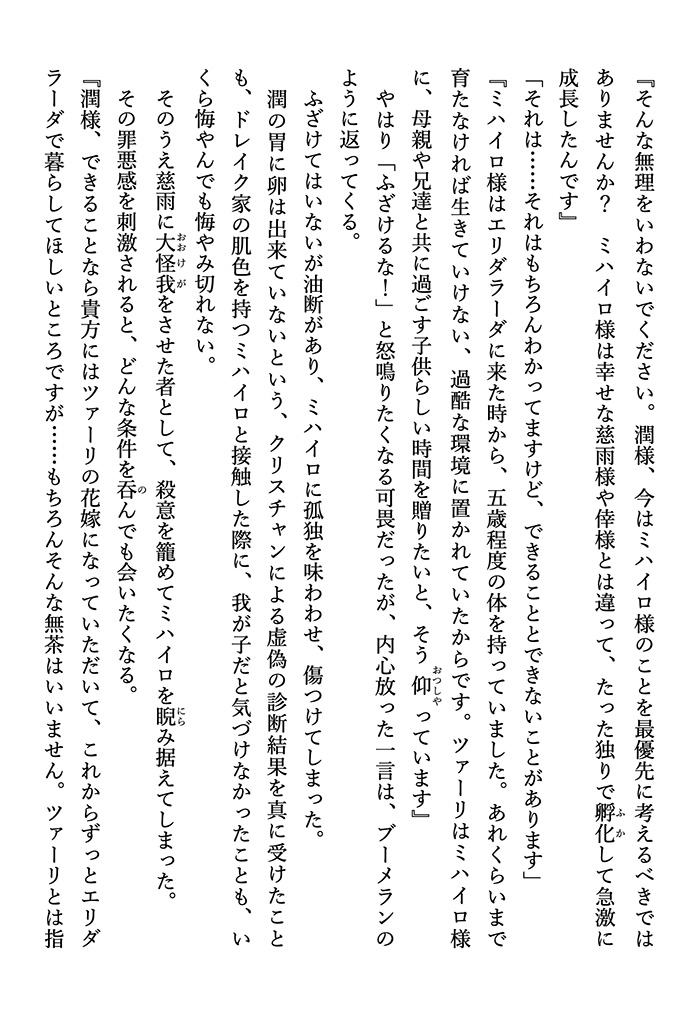 『そんな無理をいわないでください。潤様、今はミハイロ様のことを最優先に考えるべきでは
ありませんか？　ミハイロ様は幸せな慈雨様や倖様とは違って、たった独りで孵化して急激に
成長したんです』
「それは……それはもちろんわかってますけど、できることとできないことがあります」
『ミハイロ様はエリダラーダに来た時から、五歳程度の体を持っていました。あれくらいまで
育たなければ生きていけない、過酷な環境に置かれていたからです。ツァーリはミハイロ様
に、母親や兄達と共に過ごす子供らしい時間を贈りたいと、そう仰っています』
やはり「ふざけるな！」と怒鳴りたくなる可畏だったが、内心放った一言は、ブーメランの
ように返ってくる。
ふざけてはいないが油断があり、ミハイロに孤独を味わわせ、傷つけてしまった。
潤の胃に卵は出来ていないという、クリスチャンによる虚偽の診断結果を真に受けたこと
も、ドレイク家の肌色を持つミハイロと接触した際に、我が子だと気づけなかったことも、い
くら悔やんでも悔やみ切れない。
そのうえ慈雨に大怪我をさせた者として、殺意を籠めてミハイロを睨み据えてしまった。
その罪悪感を刺激されると、どんな条件を呑んでも会いたくなる。
『潤様、できることなら貴方にはツァーリの花嫁になっていただいて、これからずっとエリダ
ラーダで暮らしてほしいところですが……もちろんそんな無茶はいいません。ツァーリとは指